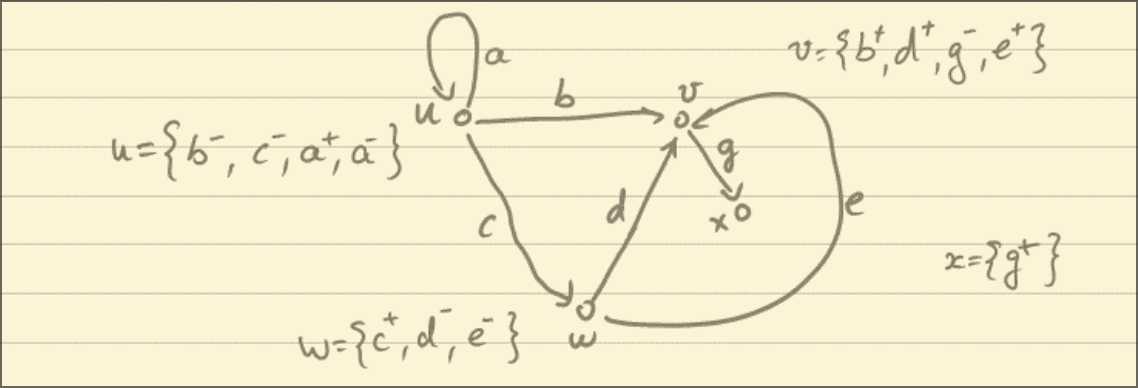 a
v={b⁺,d⁺,g⁻,e⁺}
b
v
u
u={b⁻,c⁻,a⁺,a⁻}
g
c
d
x
e
x={g⁺}
w={c⁺,d⁻,e⁻}
w